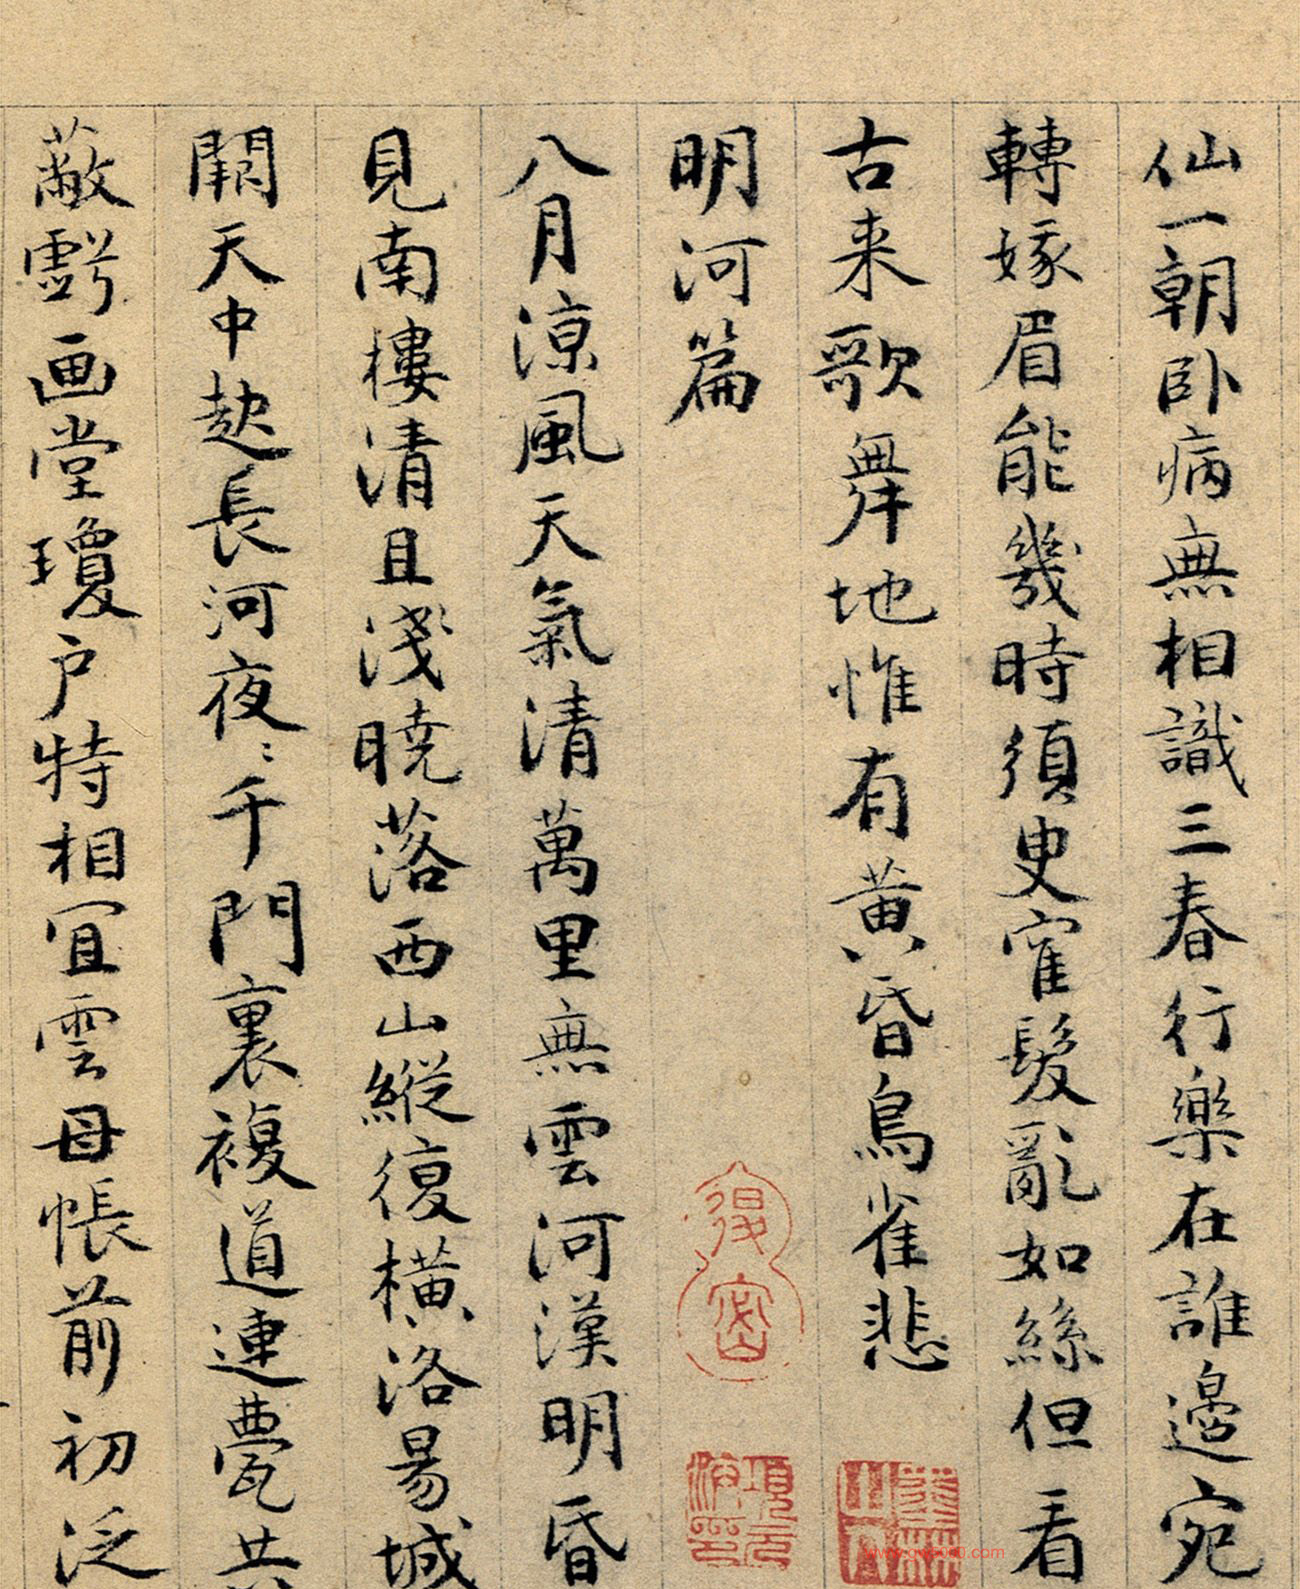 仙一朝卧病無相識三春行樂在誰邊宛
轉娥眉能幾時須臾寉髮亂如絲但看
古来歌舞地惟有黄昏鳥雀悲
明河篇
八月涼風天氣清萬里無雲河漢明昏
見南樓清且淺曉落西山縱復橫洛昜城
闕天中起長河夜〻千門裏複道連甍共
蔽虧画堂瓊户特相宜雲母帳前初泛
復密
項元汴印